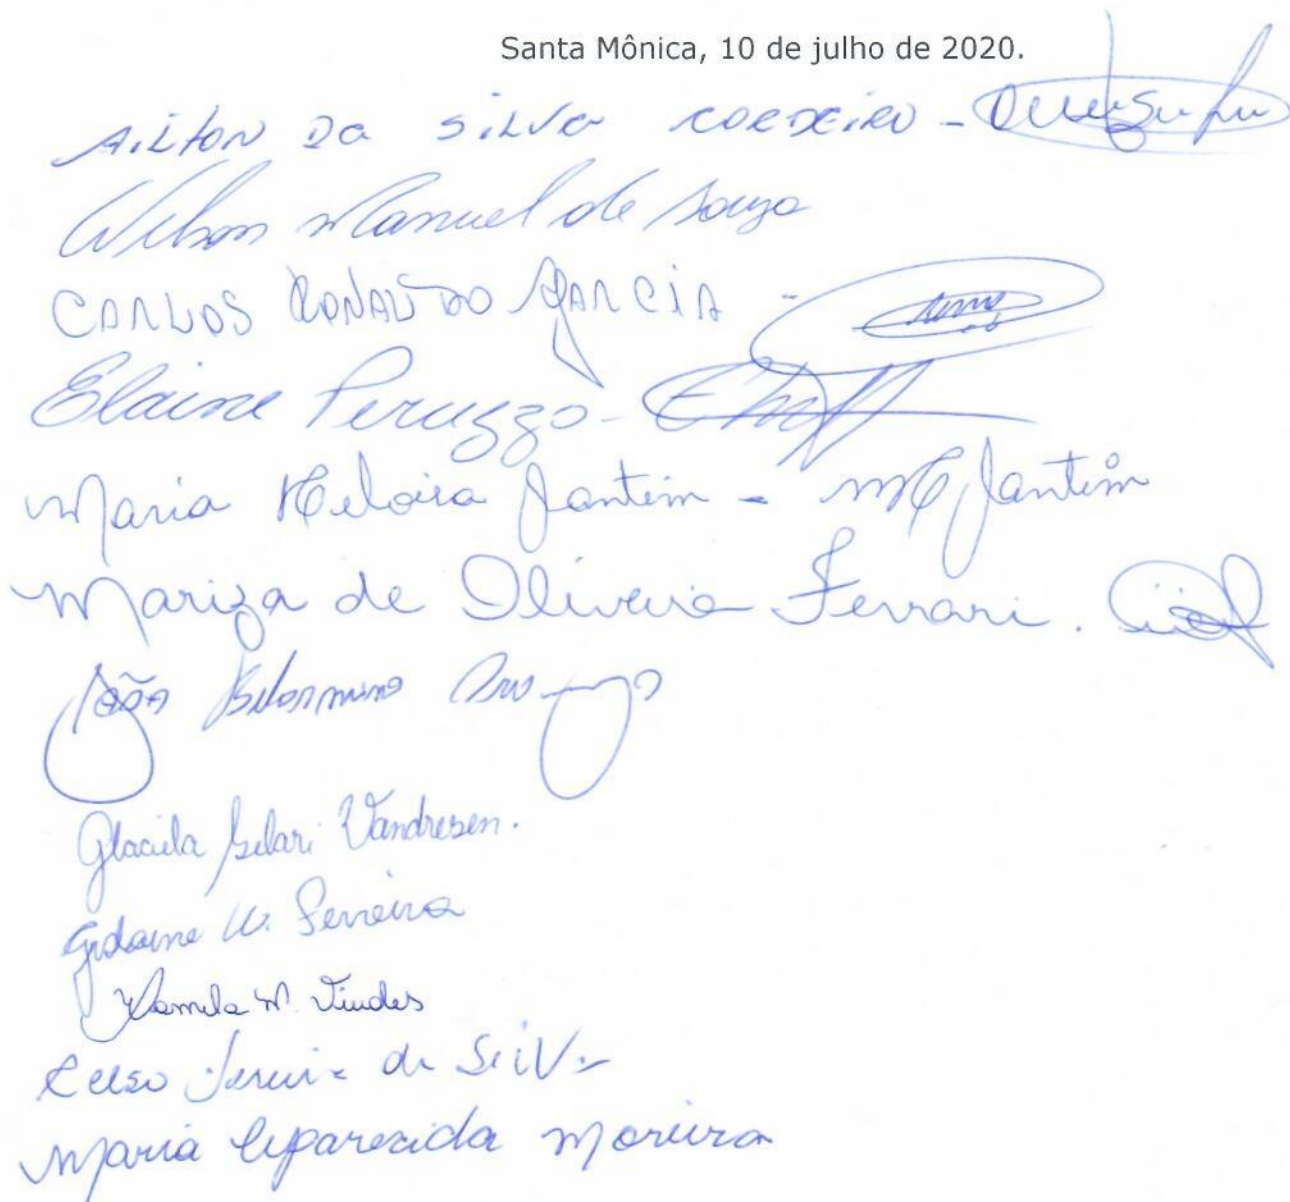 Santa Mônica, 10 de julho de 2020.
AiLTON Da SiLVa CORDEiRO -
Wilson Manuel de Souza
CARLOS RONALDO GARCIA -
Elaine Peruzzo -
Maria Heloisa Jantim - MH Jantim
Mariza de Oliveira Ferrari.
João
Vandresen.
W. Ferreira
Kamila M. Viudes
Celso de Silva
Maria Aparecida Moreira